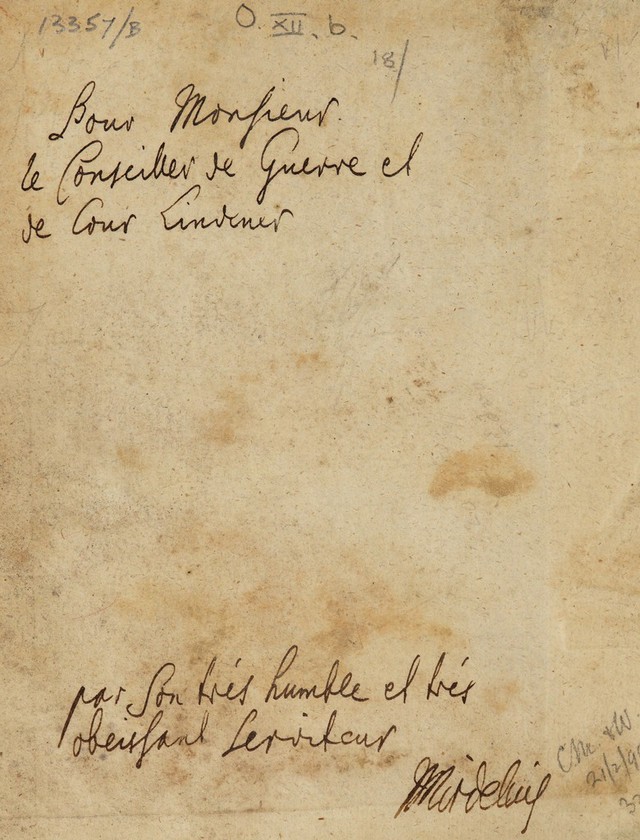 13357/B
O. XII. b.
18/
Pour Monsieur
le Conseiller de Guerre et
de Cour Lindener
par Son trés humble et trés
obeissant Serviteur